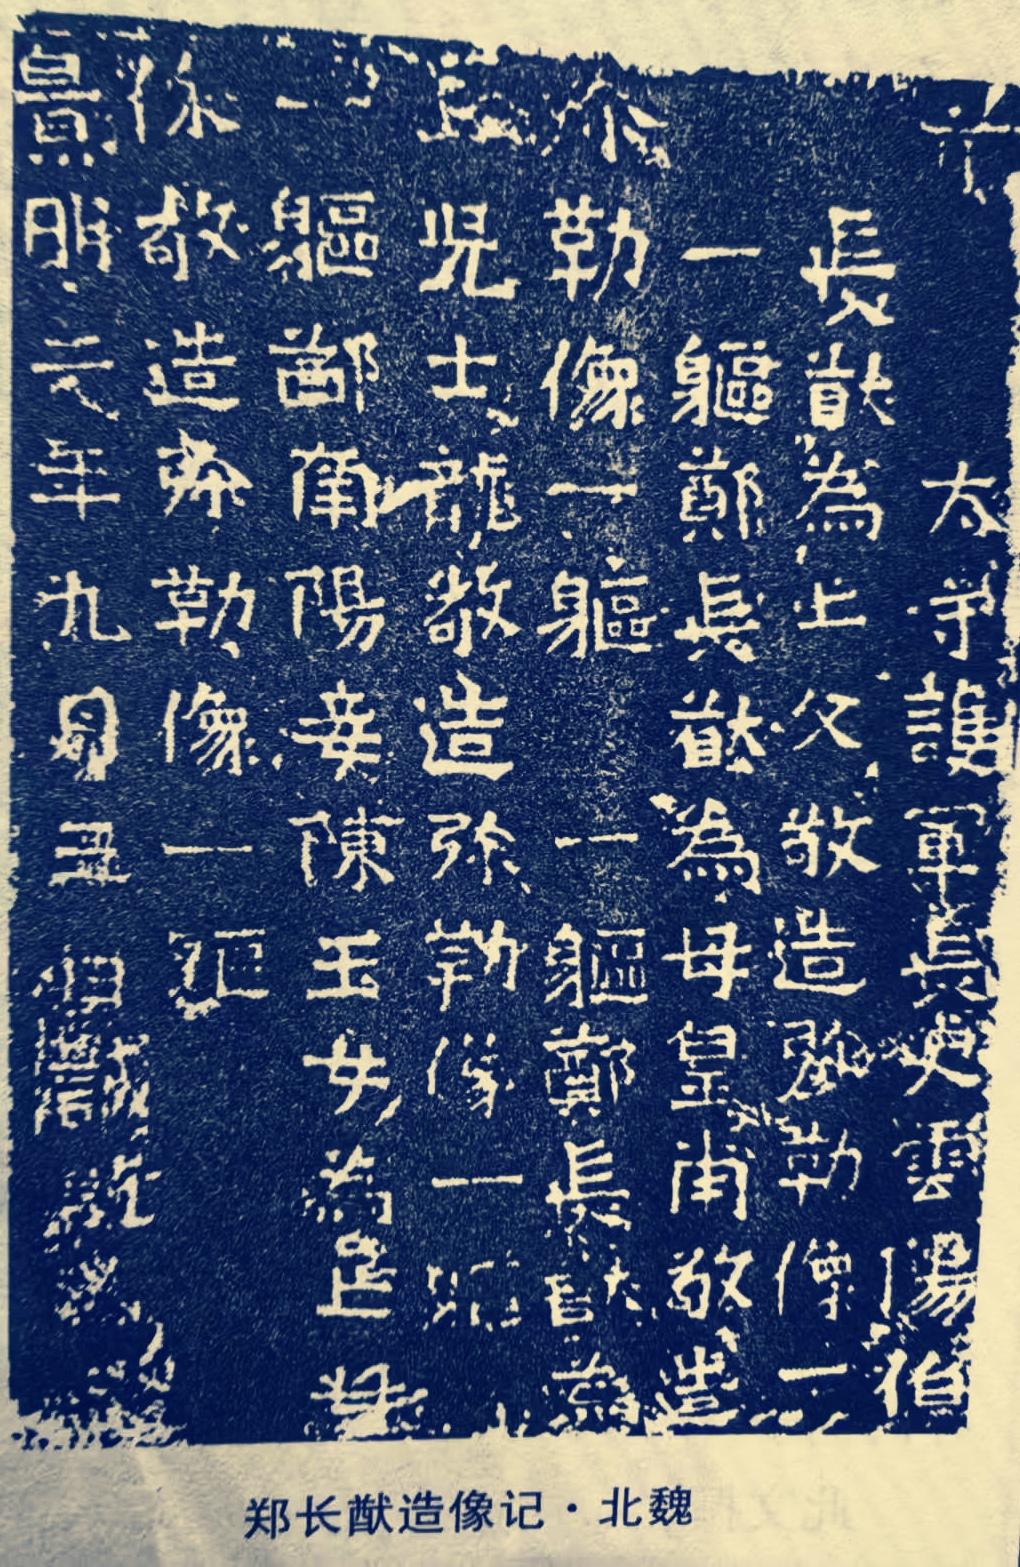 前太守護軍長史雲陽伯
長猷為亡父敬造弥勒像一
一軀鄭長猷為母皇甫敬造
弥勒像一軀一軀鄭長猷為
亡児士龍敬造弥勒像一軀
一軀南陽妾陳玉女為亡母
徐敬造弥勒像一軀
景明元年九月
郑长猷造像记·北魏